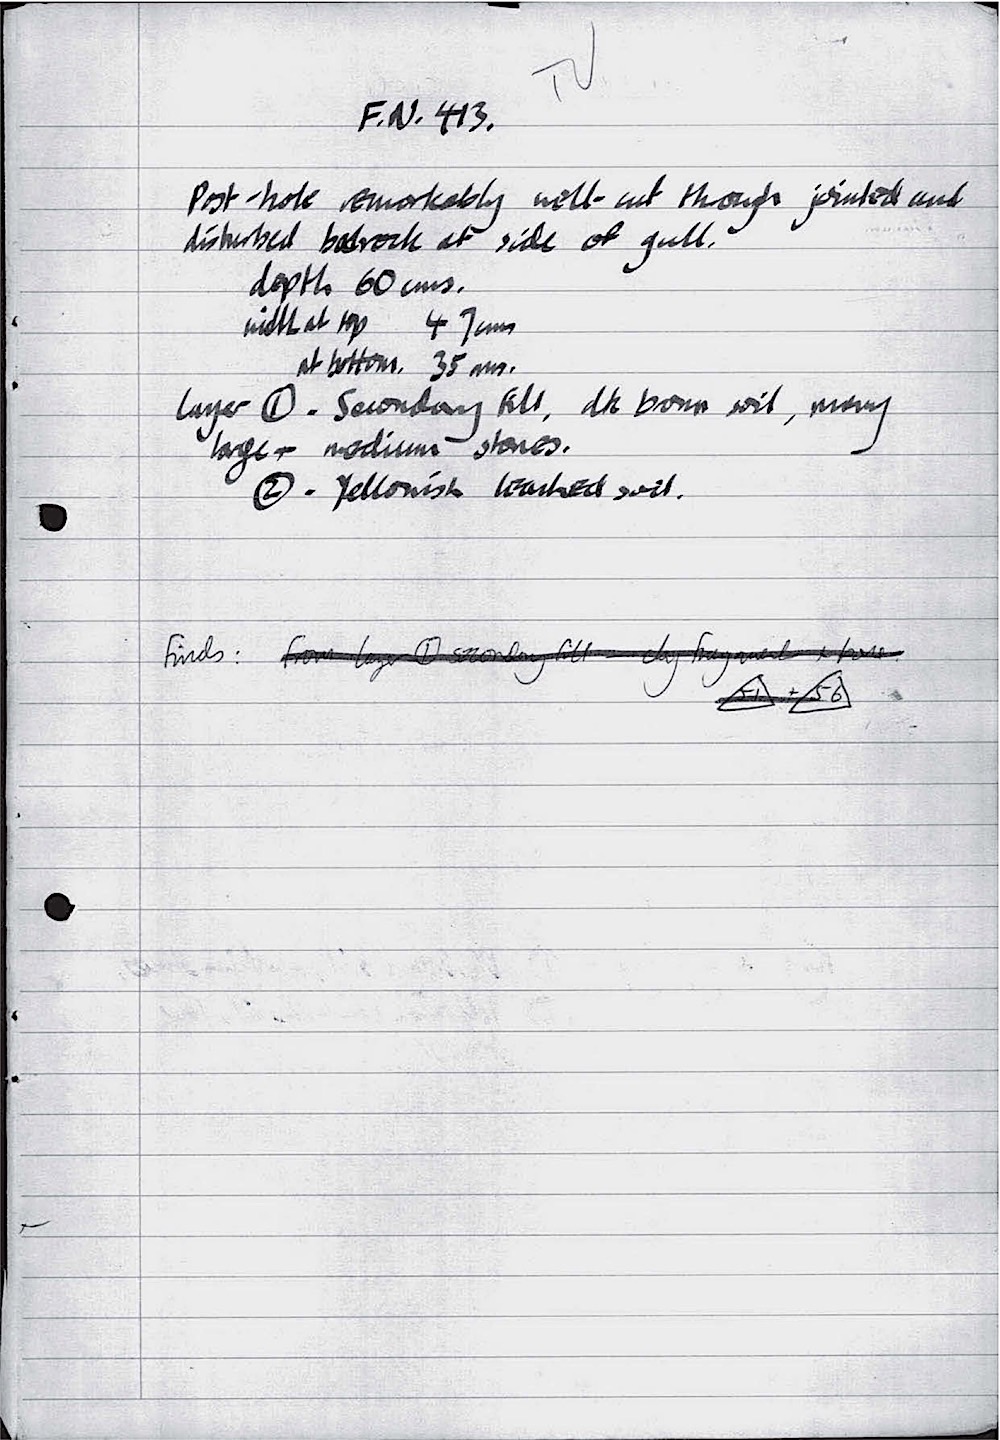 F.N. 413.
Post-hole remarkably well-cut through jointed and
disturbed bedrock at side of gull.
depth 60 cms.
width at top 47cms
at bottom. 35 cms.
Layer ① - Secondary fill, dk brown soil, many
large + medium stones.
② - Yellowish leached soil.
Finds: from layer ① secondary fill - clay fragment + bone.
51 + 56